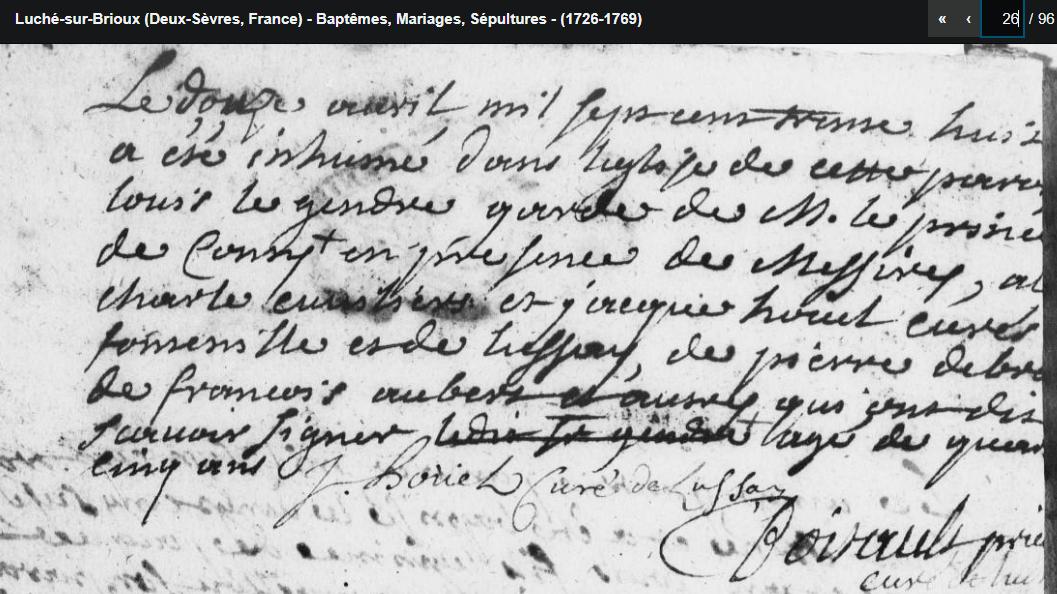 Luché-sur-Brioux (Deux-Sèvres, France) - Baptêmes, Mariages, Sépultures - (1726-1769)
« ‹ 26 / 96
Le douze avril mil sept cent trente huit
a esté inhumé dans leglise de cette paroi
louis le gendre garde de M. le prince
de Conty en presence de Messires,
charle et jacque houet curés
fontenille et de lussay, de pierre debr
de francois aubert et autres qui ont dit
scavoir signer ledit le gendre agé de quaran
cinq ans J. Houet Curé de Lussay
Poirault prie
curé de